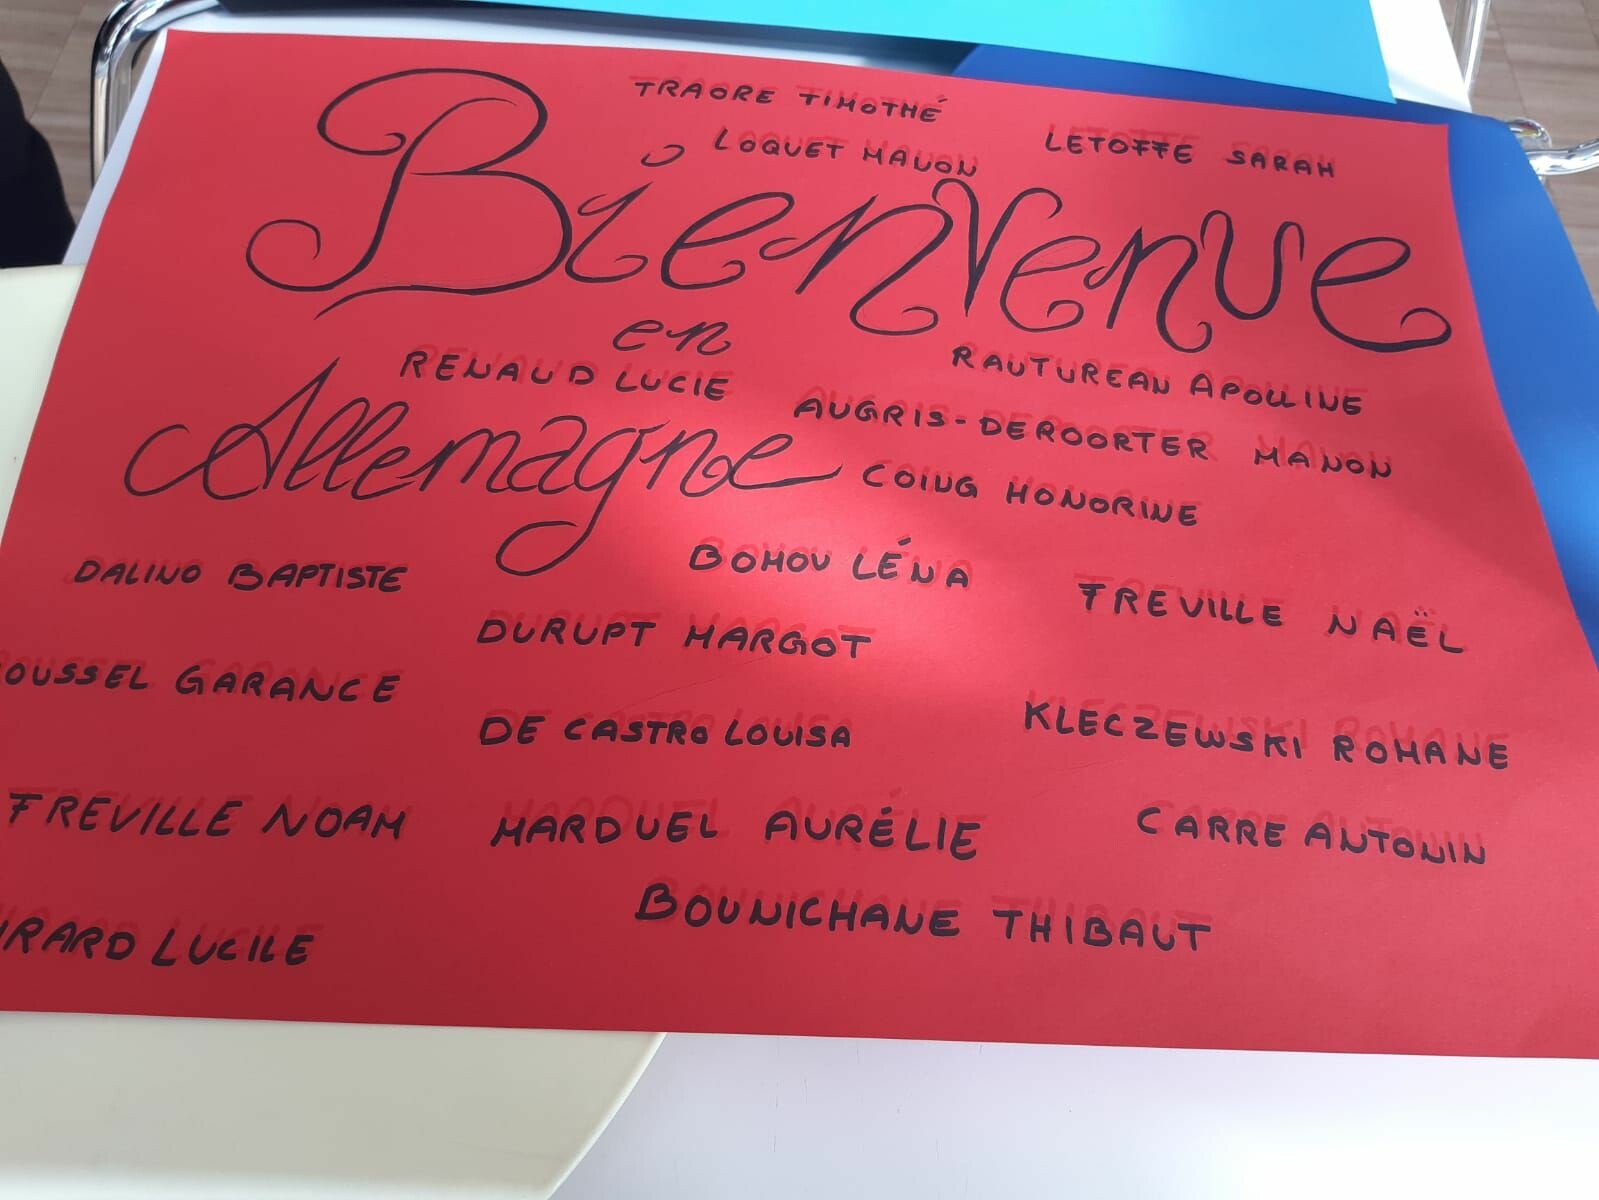 TRAORE TIMOTHÉ
LOQUET MANON
LETOFFE SARAH
Bienvenue
en
RENAUD LUCIE
RAUTUREAN APOLLINE
Allemagne
AUGRIS-DEROORTER MANON
COING HONORINE
DALINO BAPTISTE
BOHOU LÉNA
FREVILLE NAËL
DURUPT MARGOT
OUSSEL GARANCE
DE CASTRO LOUISA
KLECZEWSKI ROMANE
FREVILLE NOAM
MARDUEL AURÉLIE
CARRE ANTONIN
BOUNICHANE THIBAUT
IRARD LUCILE